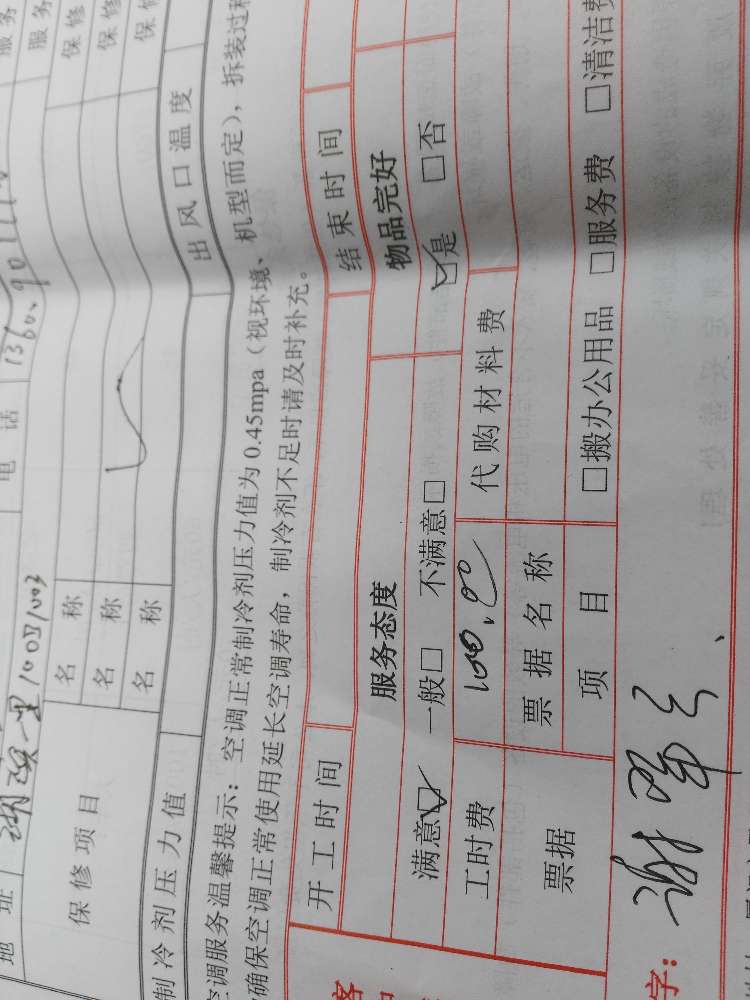 服务
服务
地址 100万1003 电话
保修
名称 保修
保修项目 名称 保修
名称
制冷剂压力值 出风口温度
空调服务温馨提示：空调正常制冷剂压力值为0.45mpa（视环境、机型而定），拆装过程
确保空调正常使用延长空调寿命，制冷剂不足时请及时补充。
开工时间 结束时间
服务态度 物品完好
满意☑ 一般□ 不满意□ ☑是 □否
工时费 100.00 代购材料费
票据 票据名称
项目 □搬办公用品 □服务费 □清洁费
客
字：谢